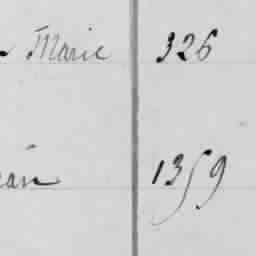 Marie 326
1359